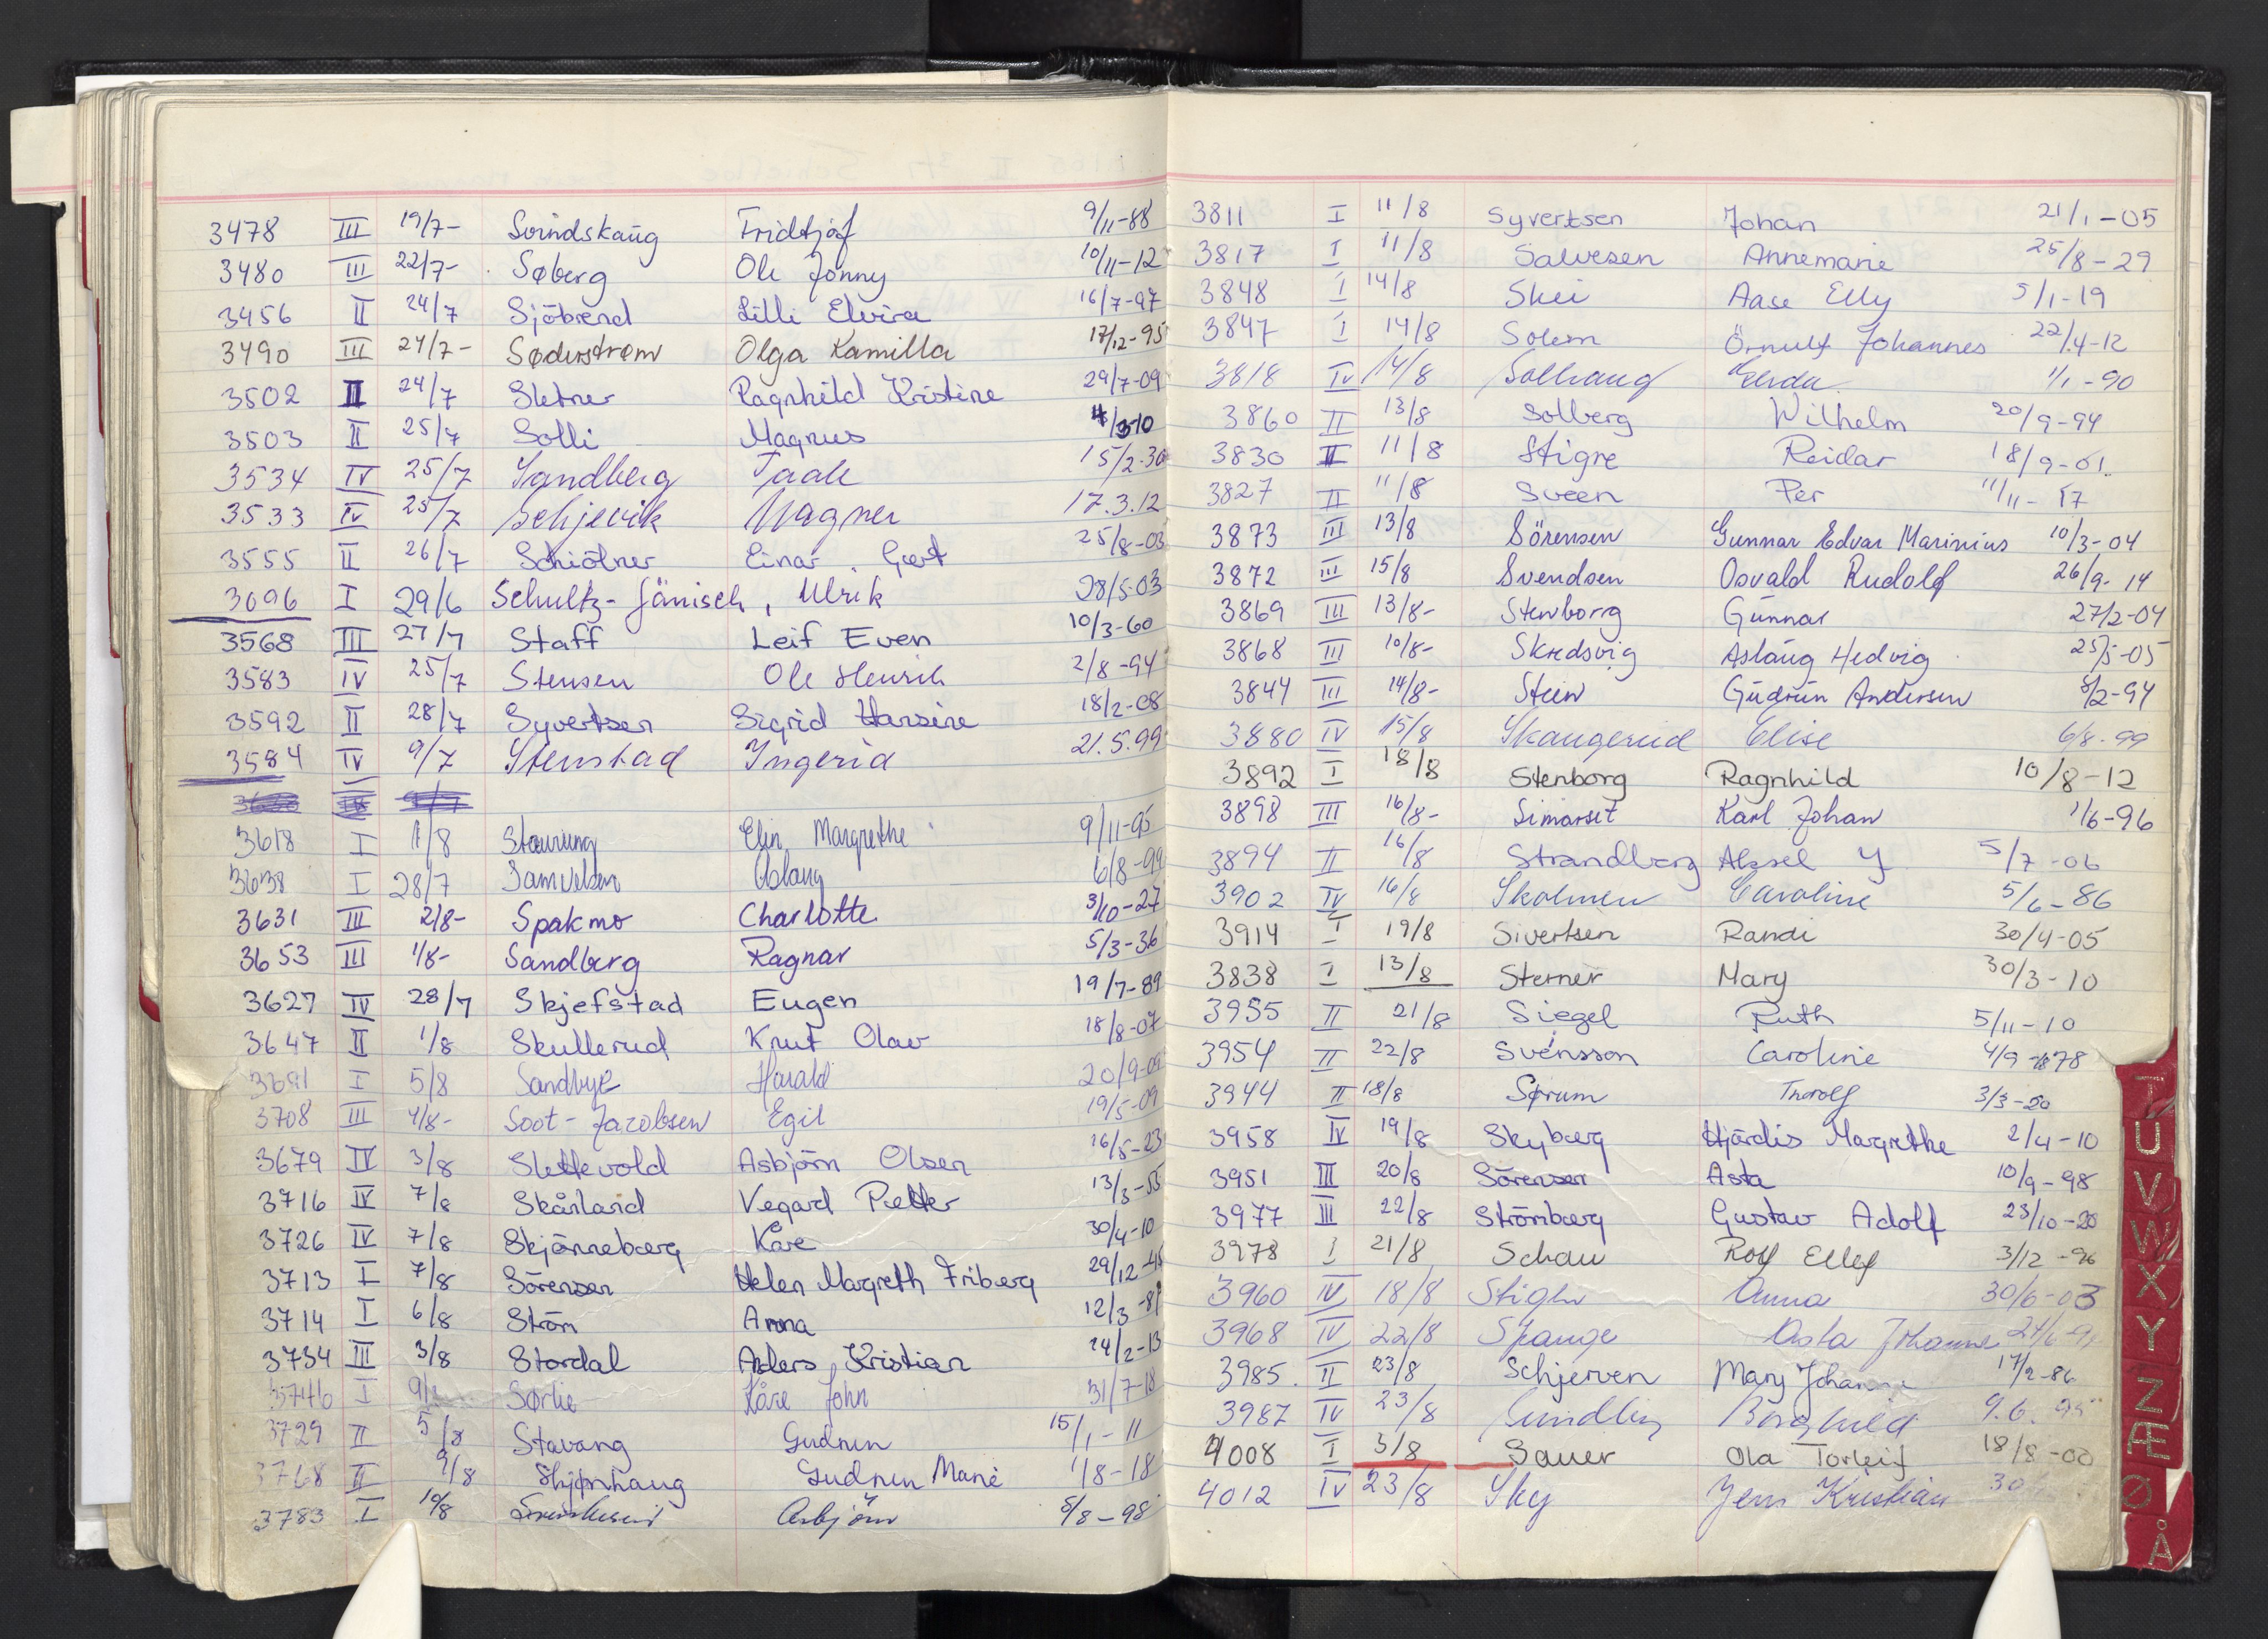 3478 III 19/7- Svindskaug Fridtjof 9/11-88
3480 III 22/7- Søberg Ole Jonny 10/11-12
3456 II 24/7 Sjöbrend Lilli Elvira 16/7-97
3490 III 24/7- Søderstrøm Olga Kamilla 17/12-95
3502 II 24/7 Sletner Ragnhild Kristine 29/7-09
3503 II 25/7 Solli Magnus
3534 IV 25/7 Sandberg 15/2-30
3533 IV 25/7 Schjevik Wagner 17.3.12
3555 II 26/7 Schiötner Einar Gert 25/8-03
3096 I 29/6 Schultz-Jänisch, Ulrik 28/5-03
3568 III 27/7 Staff Leif Even 10/3-60
3583 IV 25/7 Stensen Ole Henrik 2/8-94
3592 II 28/7 Syvertsen Sigrid Hansine 18/2-08
3584 IV 9/7 Stenstad Ingerid 21.5.99
3618 I 1/8 Elin Margrethe 9/11-95
3638 I 28/7 Samuelsen Aslaug 6/8-99
3631 III 2/8- Spakmo Charlotte 3/10-27
3653 III 1/8- Sandberg Ragnar 5/3-36
3627 IV 28/7 Skjefstad Eugen 19/7-89
3647 II 1/8 Skullerud Knut Olav 18/8-07
3691 I 5/8 Sandbye Harald 20/9-09
3708 III 4/8- Soot-Jacobsen Egil 19/5-09
3679 IV 3/8 Slettevold Asbjörn Olsen 16/5-23
3716 IV 7/8 Skårland Vegard Petter 13/3-55
3726 IV 7/8 Skjönneberg Kåre 30/4-10
3713 I 7/8 Sörensen Helen Margreth Friberg 29/12-45
3714 I 6/8 Ström Anna 12/3-
3734 III 3/8 Stordal Anders Kristian 24/2-13
3746 I Sørlie Kåre John 31/7-18
3729 II 5/8 Stavang Gudrun 15/1-11
3768 II 9/8 Skjønhaug Gudrun Marie 1/8-18
3783 I 10/8 Asbjörn 5/8-98
3811 I 11/8 Syvertsen Johan 21/1-05
3817 I 11/8 Salvesen Annemarie 25/8-29
3848 I 14/8 Skei Aase Elly 5/1-19
3847 I 14/8 Solem Örnulf Johannes 22/4-12
3818 IV 14/8 Solhaug Gerda 1/1-90
3860 II 13/8 Solberg Wilhelm 20/9-94
3830 II 11/8 Stigre Reidar 18/9-01.
3827 II 11/8 Sveen Per 11/11-17
3873 III 13/8 Sörensen Gunnar Edvar Marinius 10/3-04
3872 III 15/8 Svendsen Osvald Rudolf 26/9-14
3869 III 13/8- Stenborg Gunnar 27/2-04
3868 III 10/8- Skredsvig Aslaug Hedvig 25/5-05
3844 III 14/8- Stein Gudrun Andersen 8/2-94
3880 IV 15/8 Skaugerud Elise 6/8-99
3892 I 18/8 Stenborg Ragnhild 10/8-12
3898 III 16/8- Simarset Karl Johan 1/6-96
3894 II 16/8 Strandberg Aksel Y 5/7-06
3902 IV 16/8 Skolmen Caroline 5/6-86
3914 I 19/8 Sivertsen Randi 30/4-05
3838 I 13/8 Sterner Mary 30/3-10
3955 II 21/8 Siegel Ruth 5/11-10
3954 II 22/8 Svensson Caroline 4/9-1878
3944 II 18/8 Sørum Thorolf 3/3-20
3958 IV 19/8 Skyberg Hjördis Margrethe 2/4-10
3951 III 20/8 Sörensen Asta 10/9-98
3977 III 22/8 Strömberg Gustav Adolf 23/10-20
3978 I 21/8 Schau Rolf Ellef 3/12-96
3960 IV 18/8 Anna 30/6-03
3968 IV 22/8 Spange Asta Johanne
3985 II 23/8 Schjerven Mary Johanne 17/2-86
3987 IV 23/8 Sundby Borghild 9.6.95
4008 I 3/8 Sauer Ola Torleif 18/8-00
4012 IV 23/8 Sky Jens Kristian 30
T
U
V
W
X
Y
Z
Æ
Ø
Å